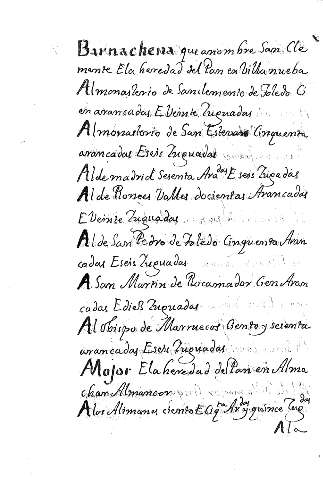 Barnachena que anombre San Cle
mente E la heredad del Pan en Villanueba
Al monasterio de San clemente de Toledo Ci
en arancadas E Veinte Yuguadas
Al monasterio de San Estevan Cinquenta
arançadas E seis Yuguadas
Al de madrid Sesenta Aradas E seis Yugadas
Al de Ronces Valles docientas Arancadas
E Veinte Yuguadas
Al de San Pedro de Toledo Cinquenta Aran
cadas E seis Yuguadas
A San Martin de Rocamador Cien Aran
cadas E diez Yuguadas
Al obispo de Marruecos Ciento y sesenta
arancadas E seis Yuguadas
Mojor E la heredad del Pan en Alma
chan Almancor
A los Alimanes ciento E Ciqta Ardas y quince Yugdas
A la